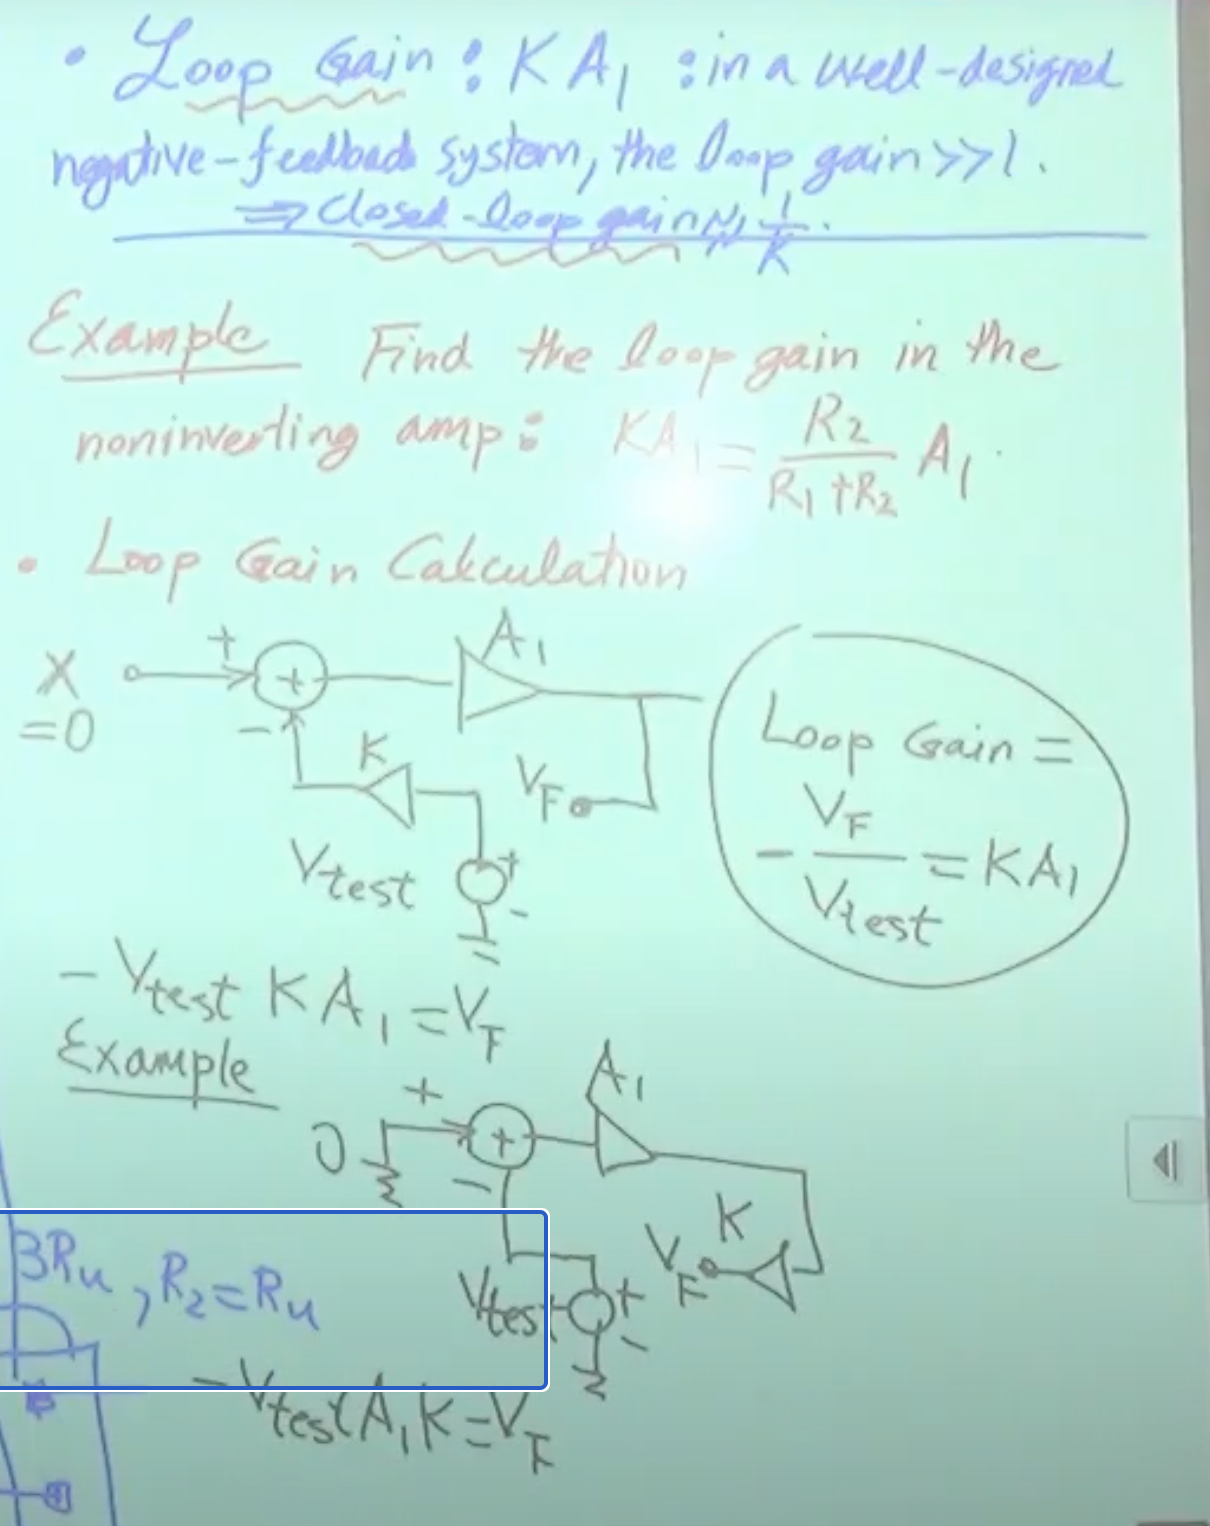 • Loop Gain : KA₁ : in a well-designed
negative-feedback system, the loop gain >> 1.
⇒ Closed-loop gain ≈ 1/K.
Example Find the loop gain in the
noninverting amp: KA₁ = R₂/(R₁+R₂) A₁.
• Loop Gain Calculation
X + + A₁
=0 - K V_F
Vtest + -
Loop Gain =
- V_F/Vtest = KA₁
- Vtest KA₁ = V_F
Example
0 + + - A₁
K V_F
Vtest + -
3Ru, R₂=Ru
- Vtest A₁K = V_F